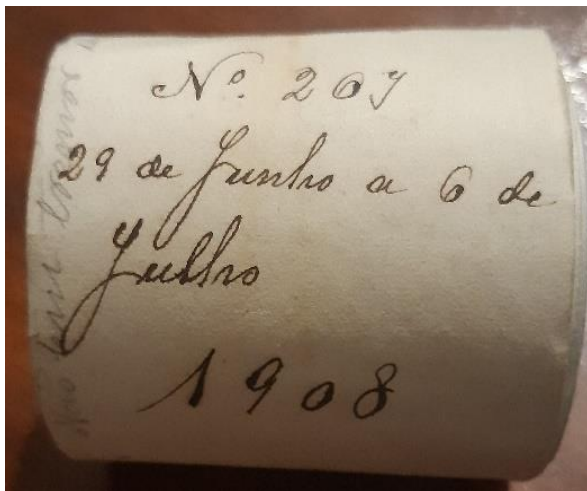 Nº 207
29 de Junho a 6 de
Julho
1908